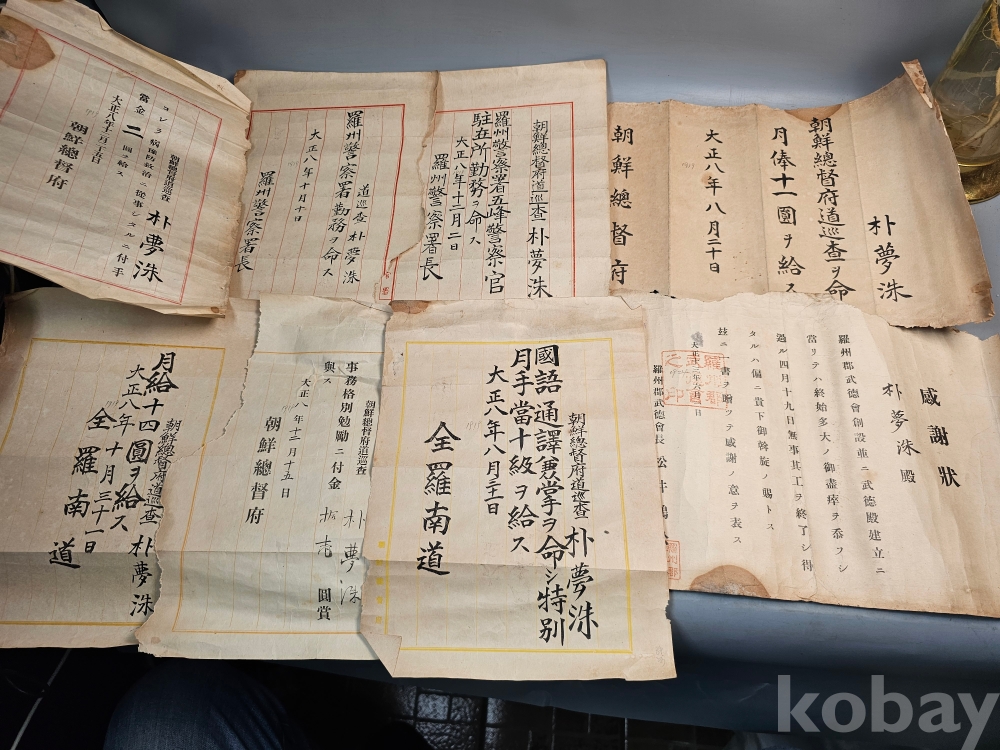 朝鮮總督府道巡査 朴夢洙
コレラ病豫防救治ニ從事シタルニ付手
當金二圓ヲ給ス
大正八年十一月十五日
朝鮮總督府
道巡査 朴夢洙
羅州警察署勤務ヲ命ス
大正八年十月十日
羅州警察署長
朝鮮總督府道巡査 朴夢洙
羅州警察署五峰警察官
駐在所勤務ヲ命ス
大正八年十二月二日
羅州警察署長
朴夢洙
朝鮮總督府道巡査ヲ命
月俸十一圓ヲ給ス
大正八年八月二十日
朝鮮總督府
朝鮮總督府道巡査 朴夢洙
月給十四圓ヲ給ス
大正八年十月三十一日
全羅南道
朝鮮總督府道巡査 朴夢洙
事務格別勉勵ニ付金 圓賞
與ス
大正八年十二月十五日
朝鮮總督府
朝鮮總督府道巡査 朴夢洙
國語通譯兼掌ヲ命シ特別
月手當十級ヲ給ス
大正八年八月三十一日
全羅南道
感謝狀
朴夢洙殿
羅州郡武德會創設並ニ武德殿建立ニ
當リテハ終始多大ノ御盡瘁ヲ忝フシ
過ル四月十九日無事其工ヲ終了シ得
タルハ偏ニ貴下御斡旋ノ賜トス
玆ニ一書ヲ贈ヲテ感謝ノ意ヲ表ス
年六月 日
羅州郡武德會長 松井
kobay